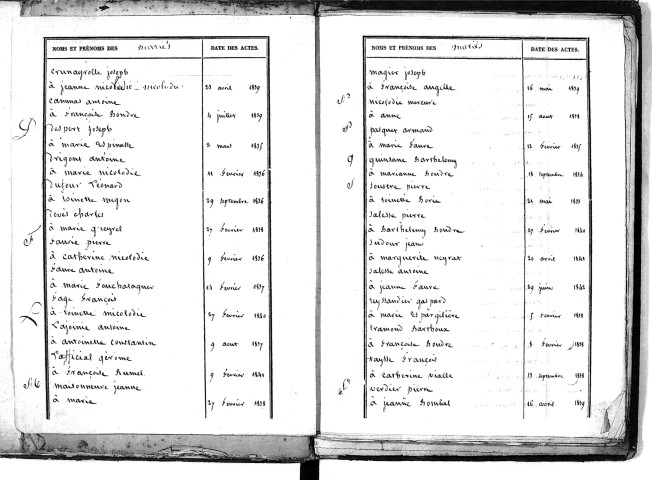 NOMS ET PRÉNOMS DES mariés DATE DES ACTES.
joseph
à jeanne nicolodie - nicolodie 23 avril 1839
antoine
à françoise Boudre 4 juillet 1839
Desport joseph
à marie Espinasse 3 mars 1835
antoine
à marie nicolodie 11 février 1836
Dufour Léonard
à toinette 29 septembre 1836
charles
à marie 27 février 1838
F
faurie pierre
à catherine nicolodie 9 février 1836
faure antoine
à marie fouchatagner février 1837
fage françois
à toinette nicolodie 27 février 1840
L
Lajoinie antoine
à antoinette constantin 9 aout 1837
Lafficial gérome
à françoise 9 février 1841
M
maisonneuve jeanne
à marie 27 février 1838
NOMS ET PRÉNOMS DES mariés DATE DES ACTES.
joseph
à françoise 16 mai 1839
N
nicolodie mercure
à anne 15 aout 1838
P
armand
à marie faure 12 février 1835
Q
quintane Barthelemy
à marianne Boudre 18 septembre 1834
S
Soustre pierre
à toinette Borie mai 1838
Salesse pierre
à Barthelemy Boudre 27 février 1840
Sudour jean
à marguerite neyrat 20 avril 1841
Salesse antoine
à jeanne faure 29 juin 1842
teyssandier gaspard
à marie 5 février 1838
tramond
à françoise Boudre 8 février 1838
françois
à catherine vialle septembre 1838
V
verdier pierre
à jeanne Bombal 16 avril 1839